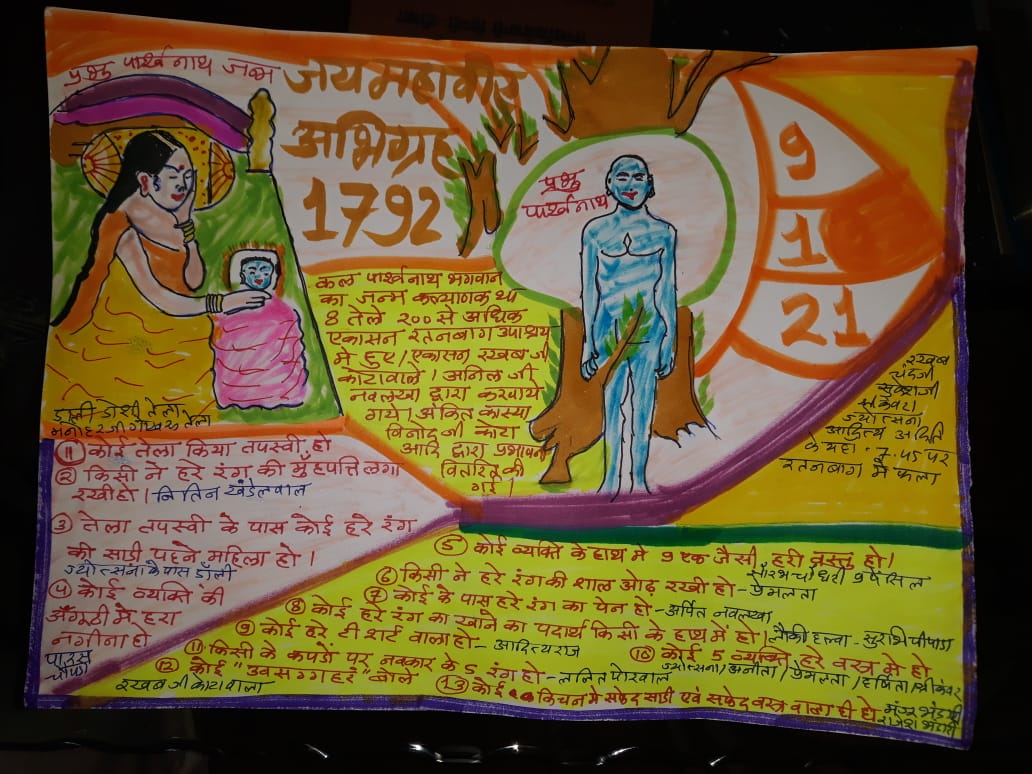 प्रभु पार्श्व नाथ जन्म
जय महावीर
अभिग्रह
1792
प्रभु
पार्श्व नाथ
9
1
21
कल पार्श्वनाथ भगवान
का जन्म कल्याणक था
8 तेले २०० से अधिक
एकासन रतनबाग उपाश्रय
मे हुए/एकासन रखब जी
कोटावाले। अनिल जी
नवलखा द्वारा करवाये
गये। अंकित कास्या
विनोद जी कोटा
आदि द्वारा प्रभावना
वितरित की
गई।
रखब
चंदजी
सकलेचा
ज्योत्सना
आदित्य अदिति
के यहा 7.45 पर
रतनबाग मे कला
डॉली डोशी तेला
मनोहर जी गोखरू तेला
① कोई तेला किया तपस्वी हो
② किसी ने हरे रंग की मुँहपत्ति लगा
रखी हो। नितिन खंडेलवाल
③ तेला तपस्वी के पास कोई हरे रंग
की साडी पहने महिला हो।
ज्योत्सना के पास डॉली
④ कोई व्यक्ति की
अँगूठी मे हरा
नगीना हो
पारस
चौपडा
⑤ कोई व्यक्ति के हाथ मे 9 एक जैसी हरी वस्तु हो।
सौरभ चौधरी 9 पेंसिल
⑥ किसी ने हरे रंग की शाल ओढ़ रखी हो- प्रेमलता
⑦ कोई के पास हरे रंग का पेन हो- अर्पित नवलखा
⑧ कोई हरे रंग का खाने का पदार्थ किसी के हाथ मे हो। लौकी हलवा- सुरभि पीपाडा
⑨ कोई हरे टी शर्ट वाला हो- आदित्य राज
⑩ कोई 5 व्यक्ति हरे वस्त्र मे हो
ज्योत्सना/अनीता/प्रेमलता/हर्षिता/श्रीकंवर
⑪ किसी के कपडो पर नवकार के 5 रंग हो- ललित पोरवाल
⑫ कोई "उवसग्गहरं" बोले
रखब जी कोटावाला
⑬ कोई किचन मे सफेद साडी एवं सफेद वस्त्र वाला ही हो
मंजू भंडारी
राजेश भंडारी